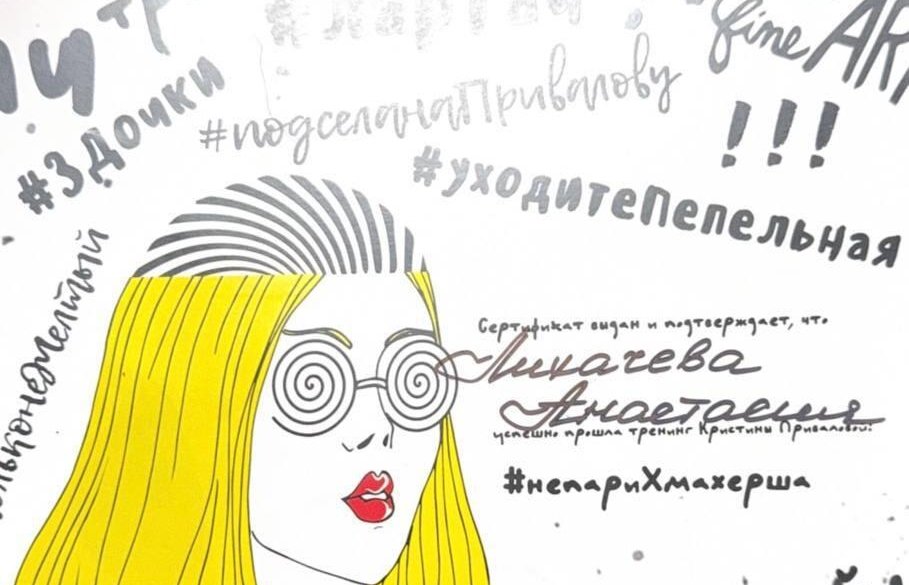 fine ART
!!!
#3Дочки
#подселанаПривалову
#уходитеПепельная
Сертификат выдан и подтверждает, что
Лихачева
Анастасия
успешно прошла тренинг Кристины Приваловой:
#непариХмахерша